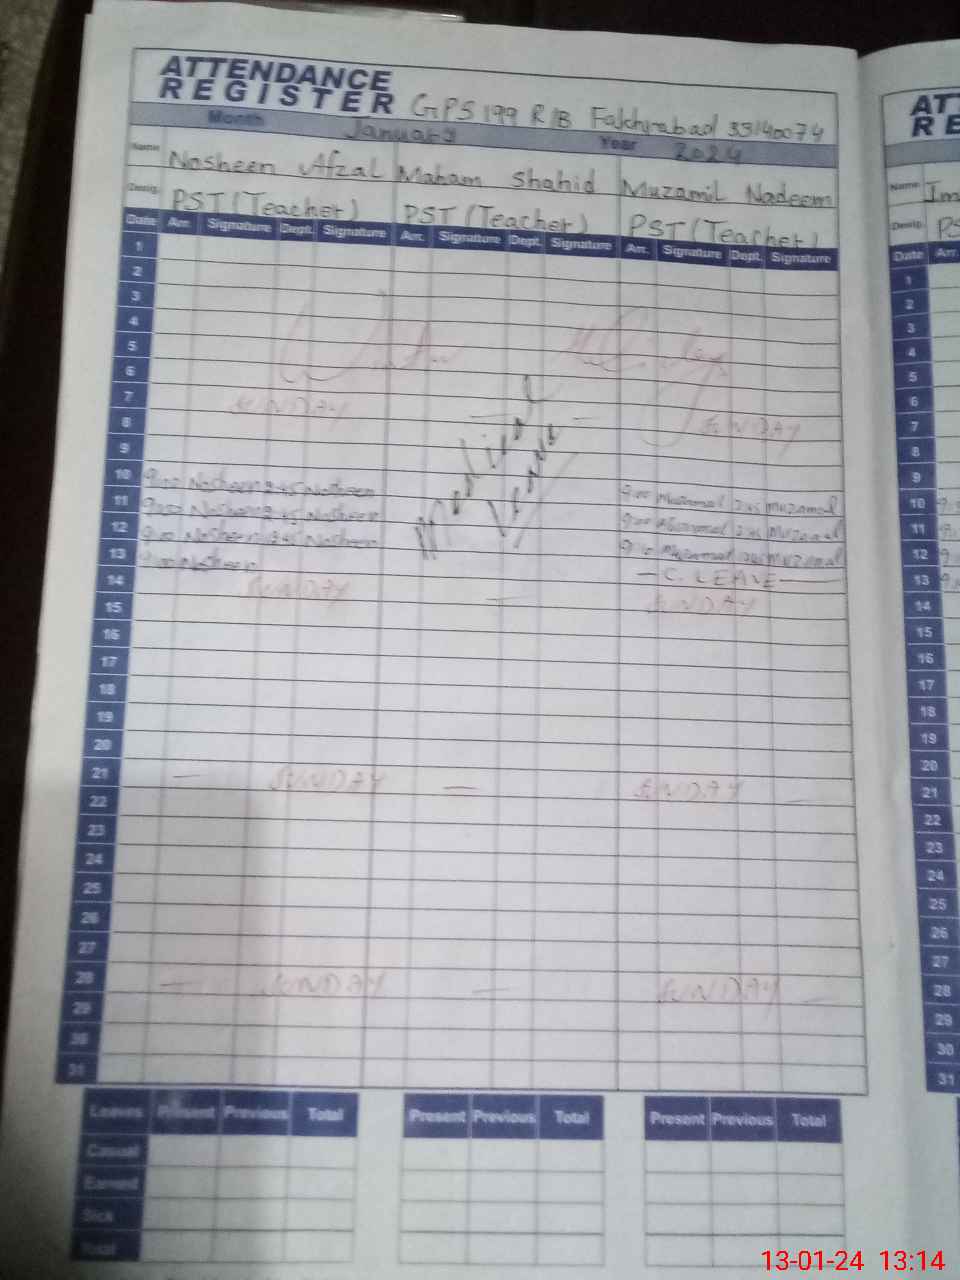 ATTENDANCE
REGISTER GPS 199 R/B Fakhirabad 33140074
Month January Year 2024
Name Nosheen Afzal Maham Shahid Muzamil Nadeem
Desig. PST (Teacher) PST (Teacher) PST (Teacher)
Date Arr. Signature Dept. Signature Arr. Signature Dept. Signature Arr. Signature Dept. Signature
1
2
3
4
5
6
7 SUNDAY SUNDAY
8
9
Medical
Leave
10 9:00 Nosheen 2:45 Nosheen 9:00 Muzamal 2:45 Muzamal
11 9:00 Nosheen 2:45 Nosheen 9:00 Muzamal 2:45 Muzamal
12 9:00 Nosheen 2:45 Nosheen 9:00 Muzamal 2:45 Muzamal
13 9:00 Nosheen — C. LEAVE —
14 SUNDAY — SUNDAY
15
16
17
18
19
20
21 — SUNDAY — SUNDAY
22
23
24
25
26
27
28 — SUNDAY — SUNDAY —
29
30
31
Leaves Present Previous Total Present Previous Total Present Previous Total
Casual
Earned
Sick
Total
ATT
RE
Name Im
Desig. PS
Date Arr.
1
2
3
4
5
6
7
8
9
10
11
12
13
14
15
16
17
18
19
20
21
22
23
24
25
26
27
28
29
30
31
13-01-24 13:14